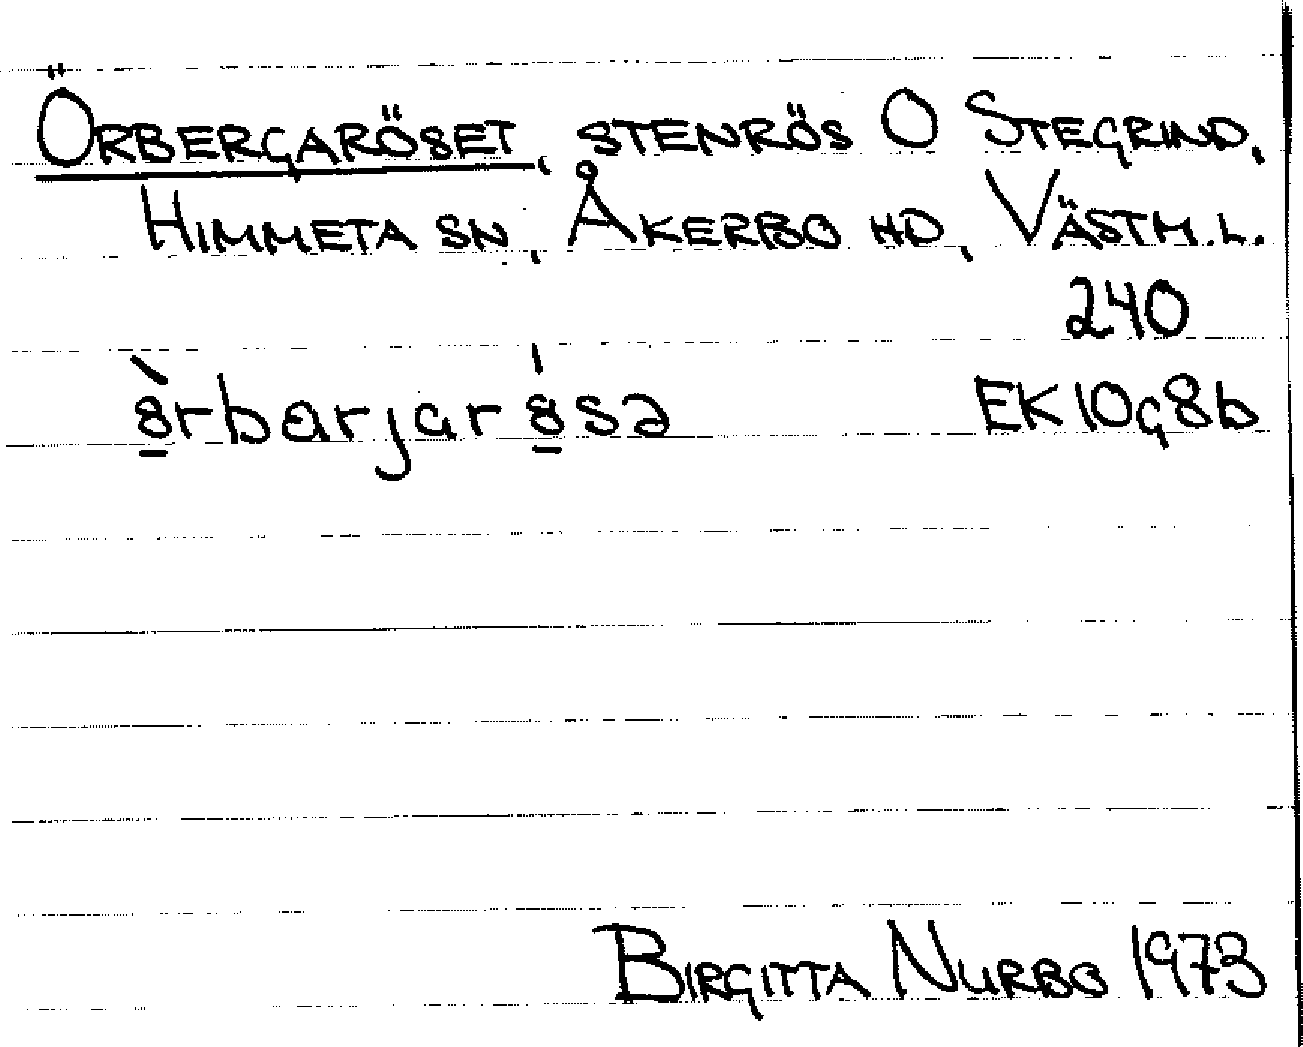 ÖRBERGARÖSET, STENRÖS O STEGRIND,
HIMMETA SN, ÅKERBO HD, VÄSTM.L.
240
ø̠̀rbarjarǿ̠sə EK10g8b
BIRGITTA NURBO 1973